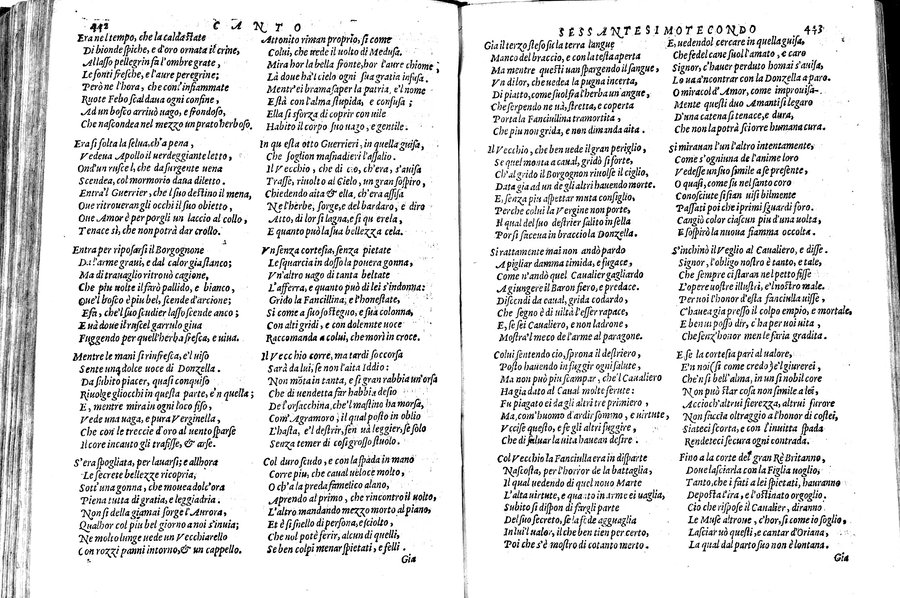 442 CANTO
Era nel tempo, che la calda state
Di bionde spiche, e d'oro ornata il crine,
A i lasso pellegrin fa l'ombre grate,
Le fonti fresche, e l'aure peregrine;
Però ne l'hora, che con l'infiammate
Ruote Febo scaldava ogni confine,
Ad un bosco arrivò vago, e frondoso,
Che nascondea nel mezzo un prato herboso.
Era sì folta la selva, ch'a pena,
Vedeva Apollo il verdeggiante letto,
Ond'un ruscel, che da surgente vena
Scendea, col mormorio dava diletto.
Entra'l Guerrier, che'l suo destino il mena,
Que ritroueran gli occhi il suo obietto,
Que Amor è per porgli un laccio al collo,
Tenace sì, che non potrà dar crollo.
Entra per riposarsi il Borgognone
Da l'arme graui, e dal calor già stanco;
Ma di trauaglio ritrouò cagione,
Che piu uolte il farò pallido, e bianco,
Que'l bosco è piu bel, scende d'arcione;
Essa, che'l suo scudier lasso scende anco;
E uà doue il ruscel garrulo giua
Fuggendo per quell'herba fresca, e uiua.
Mentre le mani si rinfresca, e'l uiso
Sente una dolce uoce di Donzella.
Da subito piacer, quasi conquiso
Riuolge gli occhi in questa parte, e'n quella;
E, mentre mira in ogni loco fiso,
Vede una uaga, e pura Verginella,
Che con le treccie d'oro al uento sparse
Il core incauto gli trafisse, & arse.
S'era spogliata, per lauarsi; e allhora
Le secrete bellezze ricopria;
Sott'una gonna, che moueа d'ora
Piena tutta di gratia, e leggiadria.
Non sì bella giamai sorge l'Aurora,
Qualhor col piu bel giorno a noi s'inuia;
Ne molto lunge uede un Vecchiarello
Con rozzi panni intorno, & un cappello.
Attonito riman proprio, sì come
Colui, che uede il uolto di Medusa.
Mira hor la bella fronte, hor l'aure chiome;
Là doue ha'l cielo ogni sua gratia infusa.
Mentr'ei brama saper la patria, e'l nome
E stà con l'alma stupida, e confusa;
Ella si sforza di coprir con uile
Habito il corpo suo uago, e gentile.
In questa otto Guerrieri, in quella guisa,
Che soglion masnadieri l'assalio.
Il Vecchio, che di ciò, ch'era, s'auisa
Trasse, riuolto al Cielo, un gran sospiro,
Chiedendo aita & ella, ch'era assisa
Ne l'herbe, sorge, e del bardaro, e diro
Atto, di lor si lagna, e si querela,
E quanto può la sua bellezza cela.
Vn senza cortesia, senza pietate
Le squarcia in dosso la pouera gonna,
Vn'altro uago di tanta beltate
L'afferra, e quanto può di lei s'indonna:
Gridò la Fanciulina, e l'honestate,
Si come a suo sostegno, e sua colonna,
Con alti gridi, e con dolente uoce
Raccomanda a colui, che morì in croce.
Il Vecchio corre, ma tardi soccorsa
Sarà da lui, se non l'aita Iddio:
Non mòta in tanta, e sì gran rabbia un'orsa
Che di uendetta far habbia desio
De l'orsacchina, che'l mastino ha morsa,
Com'Agramoro, il qual posto in oblio
L'hasta, e'l destrir, sen uà leggier, se solo
Senza temer di cosi grosso stuolo.
Col duro scudo, e con la spada in mano
Corre piu, che caual ueloce molto,
O ch'a la preda famelico alano,
Aprendo al primo, che rincontrò il uolto,
L'altro mandando mezzo morto al piano,
Et è sì snello di persona, e sciolto,
Che nol potè ferir, alcun di quelli,
Se ben colpi menar spietati, e felli.
Gia
SESSANTESIMOTECONDO 443
Gia il terzo steso sù la terra langue
Manco del braccio, e con la testa aperta
Ma mentre questi uan spargendo il sangue,
Vn di lor, che uedea la pugna incerta,
Di piatto, come suol frà l'herba un'angue,
Che serpendo ne uà, stretta, e coperta
Porta la Fanciullina tramortita,
Che piu non grida, e non dimanda aita.
Il Vecchio, che ben uede il gran periglio,
Se quel monta a caual, gridò sì forte,
Ch'al grido il Borgognon riuolse il ciglio,
Data già ad un de gli altri hauendo morte.
E, senza piu aspettar muta consiglio,
Perche colui la Vergine non porte,
Il qual del suo destrier salito in sella
Porsi faceua in braccio la Donzella.
Si rattamente mai non andò pardo
A pigliar damma timida, e fugace,
Come n'andò quel Caualier gagliardo
A giungere il Baron fiero, e predace.
Discendi da caual, grida codardo,
Che segno è di uiltà l'esser rapace,
E, se sei Caualiero, e non ladrone,
Mostra'l meco de l'arme al paragone.
Colui sentendo ciò, sprona il destriero,
Posto hauendo in fuggir ogni salute,
Ma non può piu scampar, che'l Caualiero
Ha già dato al Caual molte ferute:
Fu piagato ei da gli altri tre primiero,
Ma, com'huomo d'ardir sommo, e uirtute,
Vccise questo, e fe gli altri fuggire,
Che di saluar la uita hauean desire.
Col Vecchio la Fanciulla era in disparte
Nascosta, per l'horror de la battaglia,
Il qual uedendo di quel nouo Marte
L'alta uirtute, e quanto in arme ei uaglia,
Subito si dispon di fargli parte
Del suo secreto, se la fede agguaglia
In lui'l ualor, il che ben tien per certo,
Poi che s'è mostrò di cotanto merto.
E, uedendol cercare in quella guisa,
Che fedel cane suol l'amato, e caro
Signor, c'hauer perduto homai s'auisa,
Lo ua a'ncontrar con la Donzella a paro.
O miracol d'Amor, come improuisa-
Mente questi duo Amanti si legaro
D'una catena sì tenace, e dura,
Che non la potrà sciorre humana cura.
Si mirauan l'un l'altro intentamente,
Come s'ogniuna de l'anime loro
Vedesse un suo simile a se presente,
O quasi, come su nel santo coro
Conosciute si sian uisibilmente
Passati poi che i primi sguardi foro,
Cangiò color ciascun piu d'una uolta,
E sospirò la nuoua fiamma occolta.
S'inchinò il Veglio al Caualiero, e disse.
Signor, l'obligo nostro è tanto, e tale,
Che sempre ci staran nel petto fisse
L'opere uostre illustri, e'l nostro male.
Per uoi l'honor d'esta fanciulla uisse,
C'hauea già presso il colpo empio, e mortale,
E ben u posso dir, c'ha per uoi uita,
Che senz'honor mente saria gradita.
E se la cortesia pari al ualore,
E'n noi sì come credo, je'l giurerei,
Che'n sì bell'alma, in un sì nobil core
Non può star cosa non simile a lei,
Accioch'altrui fierezza, altrui furore
Non faccia oltraggio a l'honor di costei,
Siateci scorta, e con l'inuitta spada
Rendeteci secura ogni contrada.
Fino a la corte del gran Rè Britanno,
Doue lasciarla con la Figlia uoglio,
Tanto, che i fati a lei spietati, hauranno
Deposta l'ira, e l'ostinato orgoglio.
Ciò che rispose il Caualier, diranno
Le Muse altrone, c'hor, si come io soglio,
Lasciar uò questi, e cantar d'Oriana,
La qual dal parto suo non è lontana.
Gia